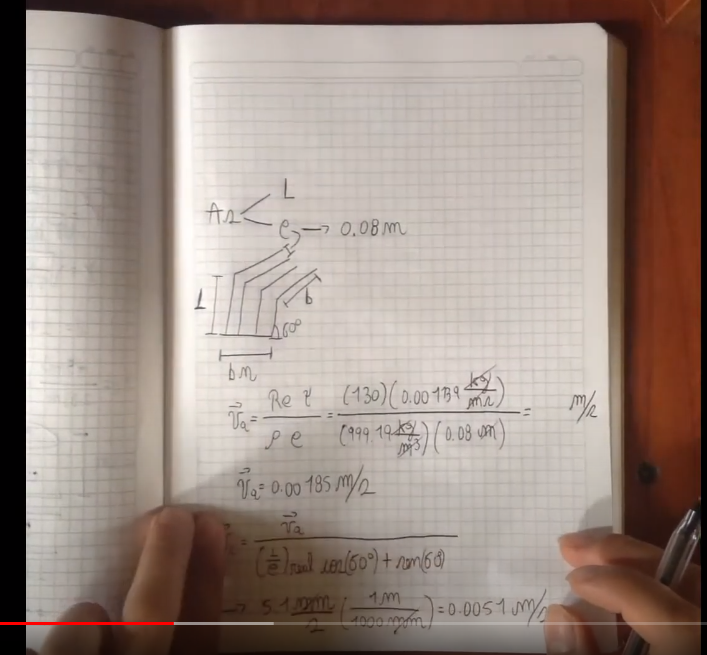 L
As
e → 0.08 m
L
b
60°
b m
V⃗a = Re γ / ρ e = (130)(0.00139 kg/ms) / (999.19 kg/m³)(0.08 m) = m/s
V⃗a = 0.00185 m/s
= V⃗a / (L/e)real cos(60°) + sen(60)
→ 5.1 mm/s (1 m / 1000 mm) = 0.0051 m/s